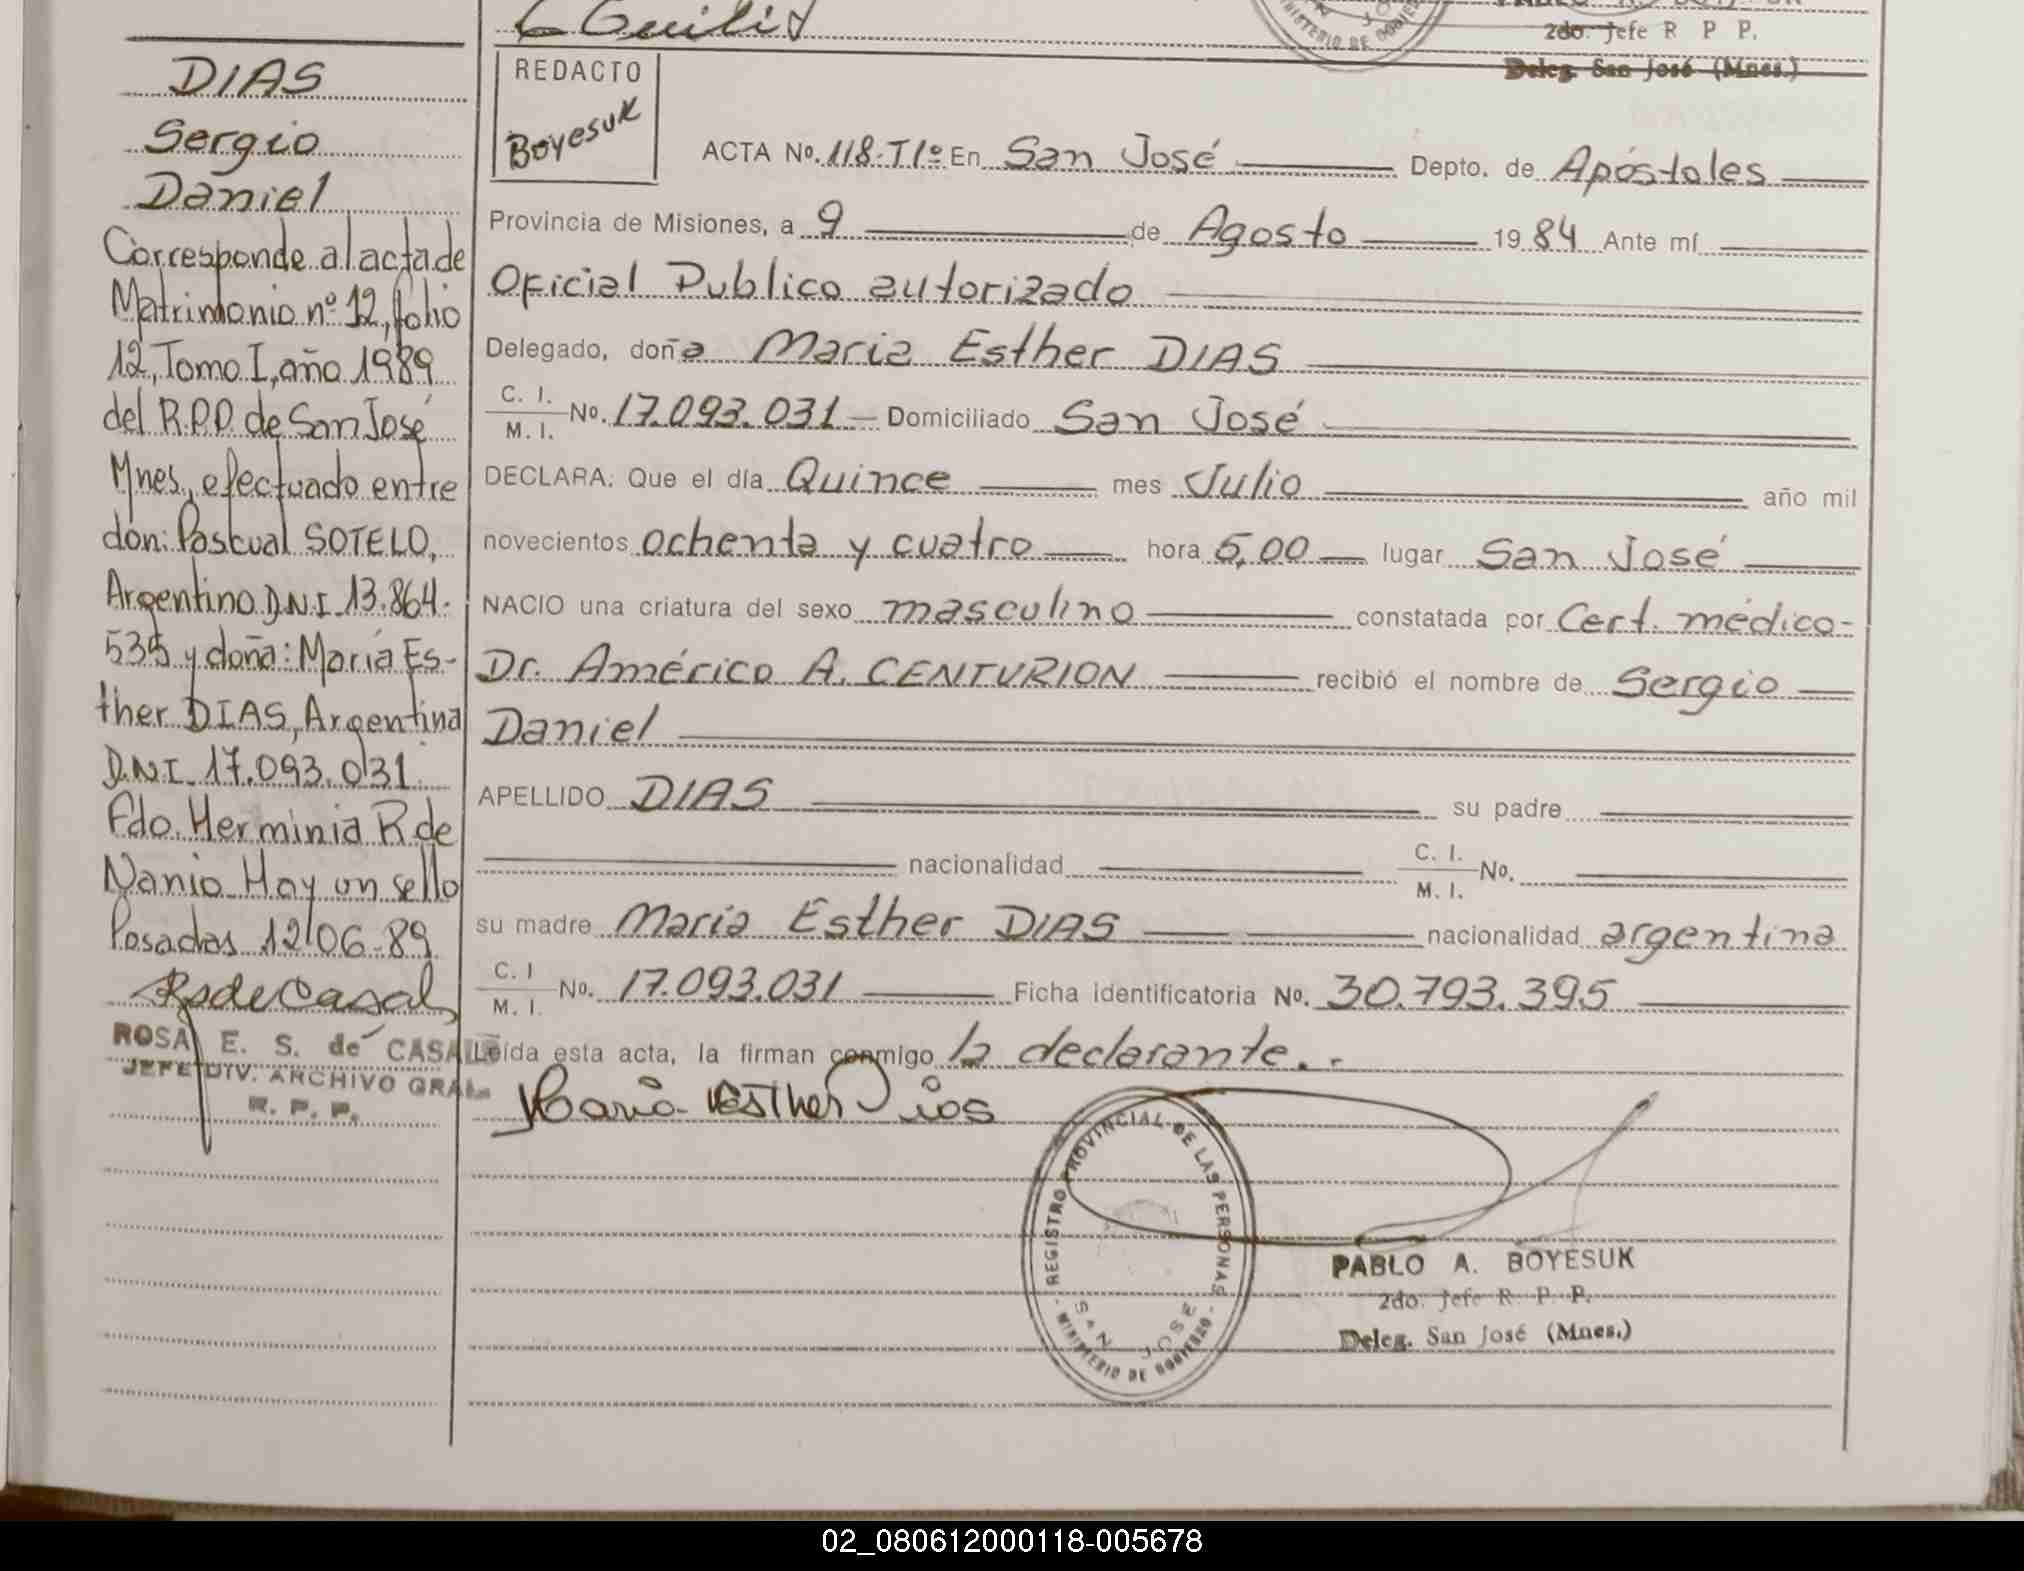 2do. Jefe R P P.
Deleg. San José (Mnes.)
DIAS
Sergio
Daniel
Corresponde al acta de
Matrimonio nº 12, folio
12, Tomo I, año 1989
del R.P.P. de San José
Mnes, efectuado entre
don: Pascual SOTELO,
Argentino D.N.I 13.864.
535 y doña: María Es-
ther DIAS, Argentina
D.N.I. 17.093.031
Fdo. Herminia R. de
Nanio Hay un sello
Posadas 12/06-89
RsdeCasal
ROSA E. S. de CASAL
JEFE DIV. ARCHIVO GRAL.
R. P. P.
REDACTO
Boyesuk
ACTA Nº. 118-T1º En San José Depto. de Apóstoles
Provincia de Misiones, a 9 de Agosto 1984 Ante mí
Oficial Publico autorizado
Delegado, doña Maria Esther DIAS
C. I. M. I. No. 17.093.031 Domiciliado San José
DECLARA: Que el día Quince mes Julio año mil
novecientos ochenta y cuatro hora 5,00 lugar San José
NACIO una criatura del sexo masculino constatada por Cert. médico-
Dr. Américo A. CENTURION recibió el nombre de Sergio
Daniel
APELLIDO DIAS su padre
nacionalidad C. I. M. I. No.
su madre Maria Esther DIAS nacionalidad argentina
C. I M. I. No. 17.093.031 Ficha identificatoria No. 30.793.395
Leída esta acta, la firman conmigo la declarante..
Maria Esther Dias
REGISTRO PROVINCIAL DE LAS PERSONAS
MINISTERIO DE GOBIERNO
SAN JOSE
PABLO A. BOYESUK
2do. Jefe R. P. P.
Deleg. San José (Mnes.)
02_080612000118-005678